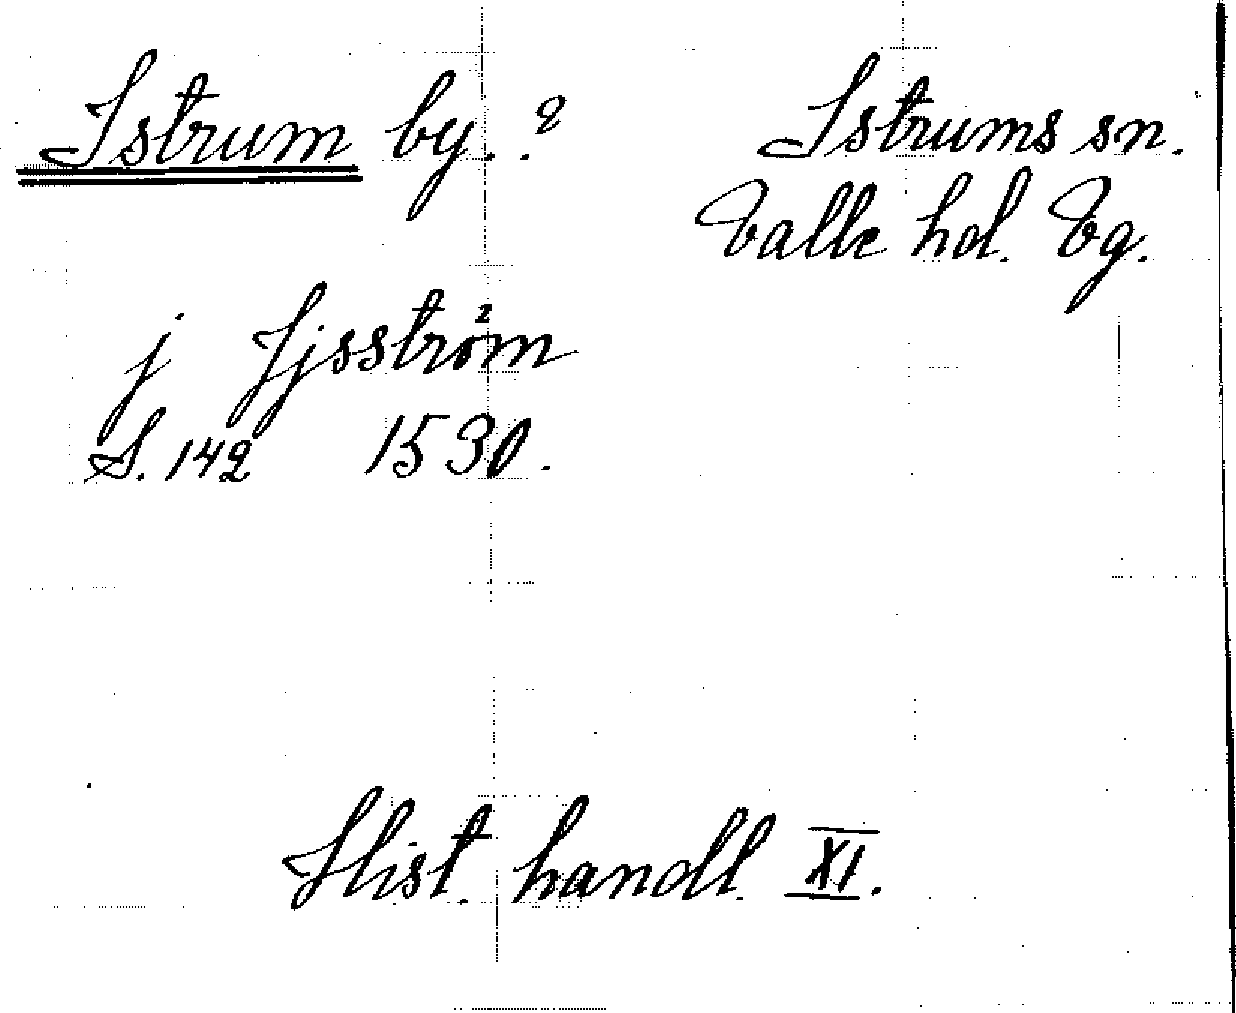 Istrum by. ?
Istrums sn.
Valle hd. Vg.
j Jjsström
S. 142 1530.
Hist. handl. XI.